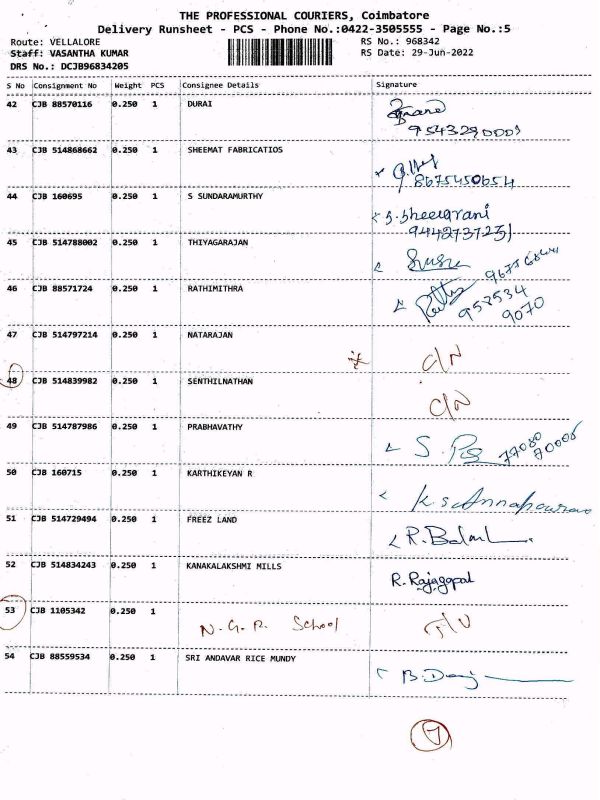 THE PROFESSIONAL COURIERS, Coimbatore
Delivery Runsheet - PCS - Phone No.:0422-3505555 - Page No.:5
Route: VELLALORE RS No.: 968342
Staff: VASANTHA KUMAR RS Date: 29-Jun-2022
DRS No.: DCJB96834205
S No Consignment No Weight PCS Consignee Details Signature
42 CJB 88570116 0.250 1 DURAI
43 CJB 514868662 0.250 1 SHEEMAT FABRICATIOS
8675450654
44 CJB 160695 0.250 1 S SUNDARAMURTHY
9442737251
45 CJB 514788002 0.250 1 THIYAGARAJAN
46 CJB 88571724 0.250 1 RATHIMITHRA
957534
9070
47 CJB 514797214 0.250 1 NATARAJAN
C/N
48 CJB 514839982 0.250 1 SENTHILNATHAN
C/N
49 CJB 514787986 0.250 1 PRABHAVATHY
50 CJB 160715 0.250 1 KARTHIKEYAN R
51 CJB 514729494 0.250 1 FREEZ LAND
52 CJB 514834243 0.250 1 KANAKALAKSHMI MILLS
R. Rajagopal
53 CJB 1105342 0.250 1 N.G.R. School
54 CJB 88559534 0.250 1 SRI ANDAVAR RICE MUNDY
7